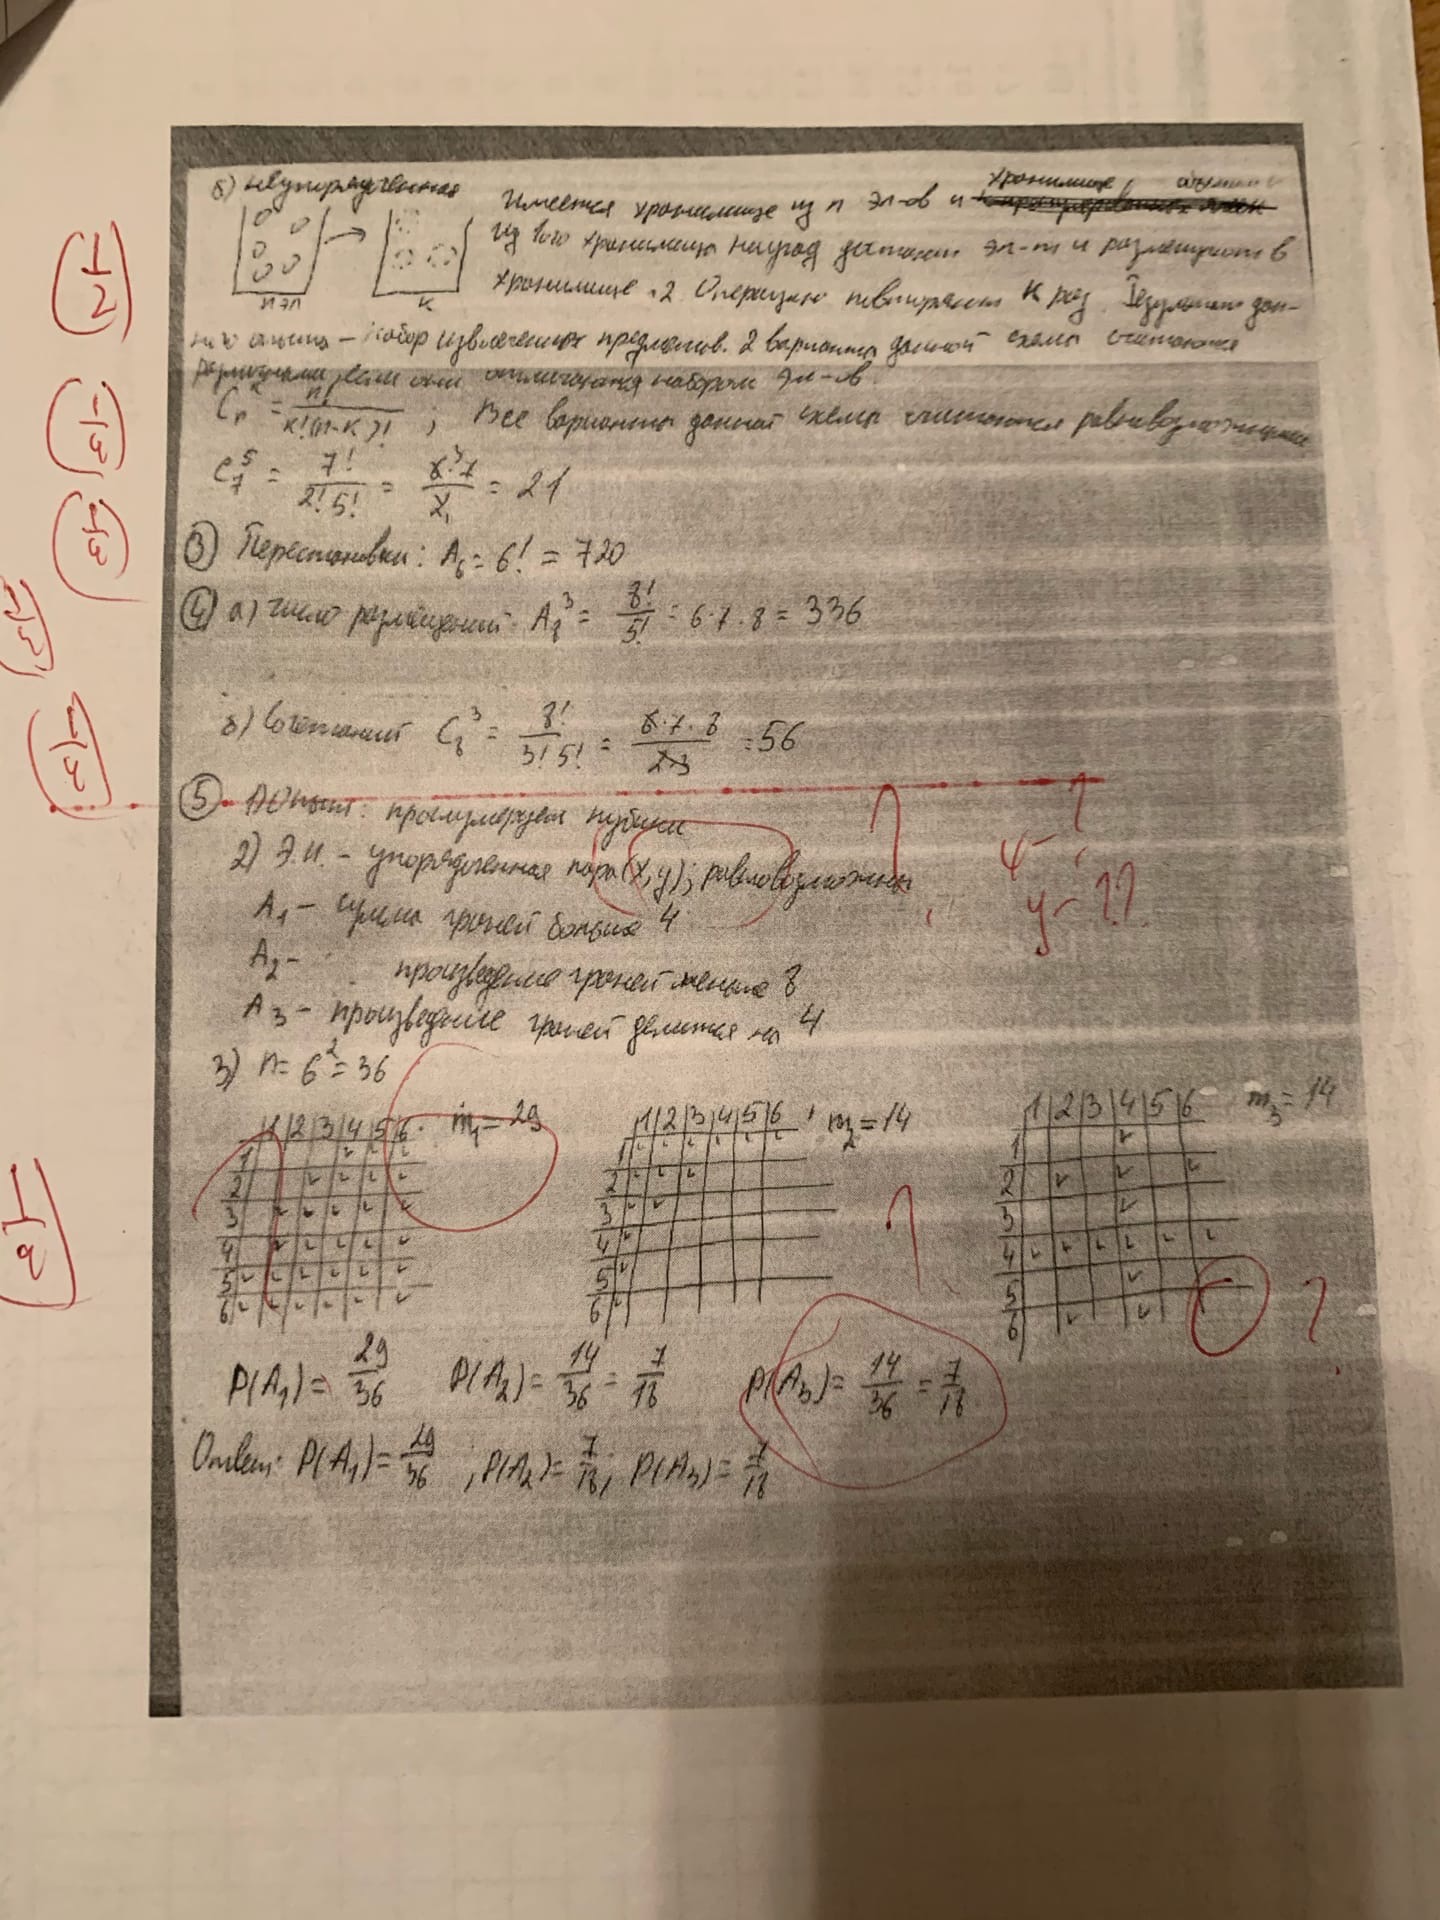 б) неупорядоченная
Имеется хранилище из n эл-ов и хранилище,
из 1ого хранилища наугад достают эл-т и размещают в
n эл k хранилище 2. Операцию повторяют k раз. Результат дан-
ного опыта – набор извлеченных предметов. 2 варианта данной схемы считаются
различными, если они отличаются набором эл-ов.
C_n^k = n!/(k!(n-k)!) ; Все варианты данной схемы считаются равновозможными
C_7^5 = 7!/(2!5!) = 6·7/2 = 21
3 1
③ Перестановки: A_6 = 6! = 720
④ а) число размещений A_8^3 = 8!/5! = 6·7·8 = 336
б) Сочетаний C_8^3 = 8!/(3!5!) = 6·7·8/(2·3) = 56
⑤ 1) Опыт: пронумеруем кубики ? x - ?
2) Э.И. – упорядоченная пара (x,y); равновозможны y - ??
A_1 – сумма граней больше 4
A_2 – произведение граней меньше 8
A_3 – произведение граней делится на 4
3) n = 6^2 = 36
1 2 3 4 5 6 m_1 = 29 1 2 3 4 5 6 m_2 = 14 1 2 3 4 5 6 m_3 = 14
1 1 1
2 2 2
3 3 3
4 4 ? 4
5 5 5 ?
6 6 6
P(A_1) = 29/36 P(A_2) = 14/36 = 7/18 P(A_3) = 14/36 = 7/18
Ответ: P(A_1) = 29/36 ; P(A_2) = 7/18; P(A_3) = 7/18